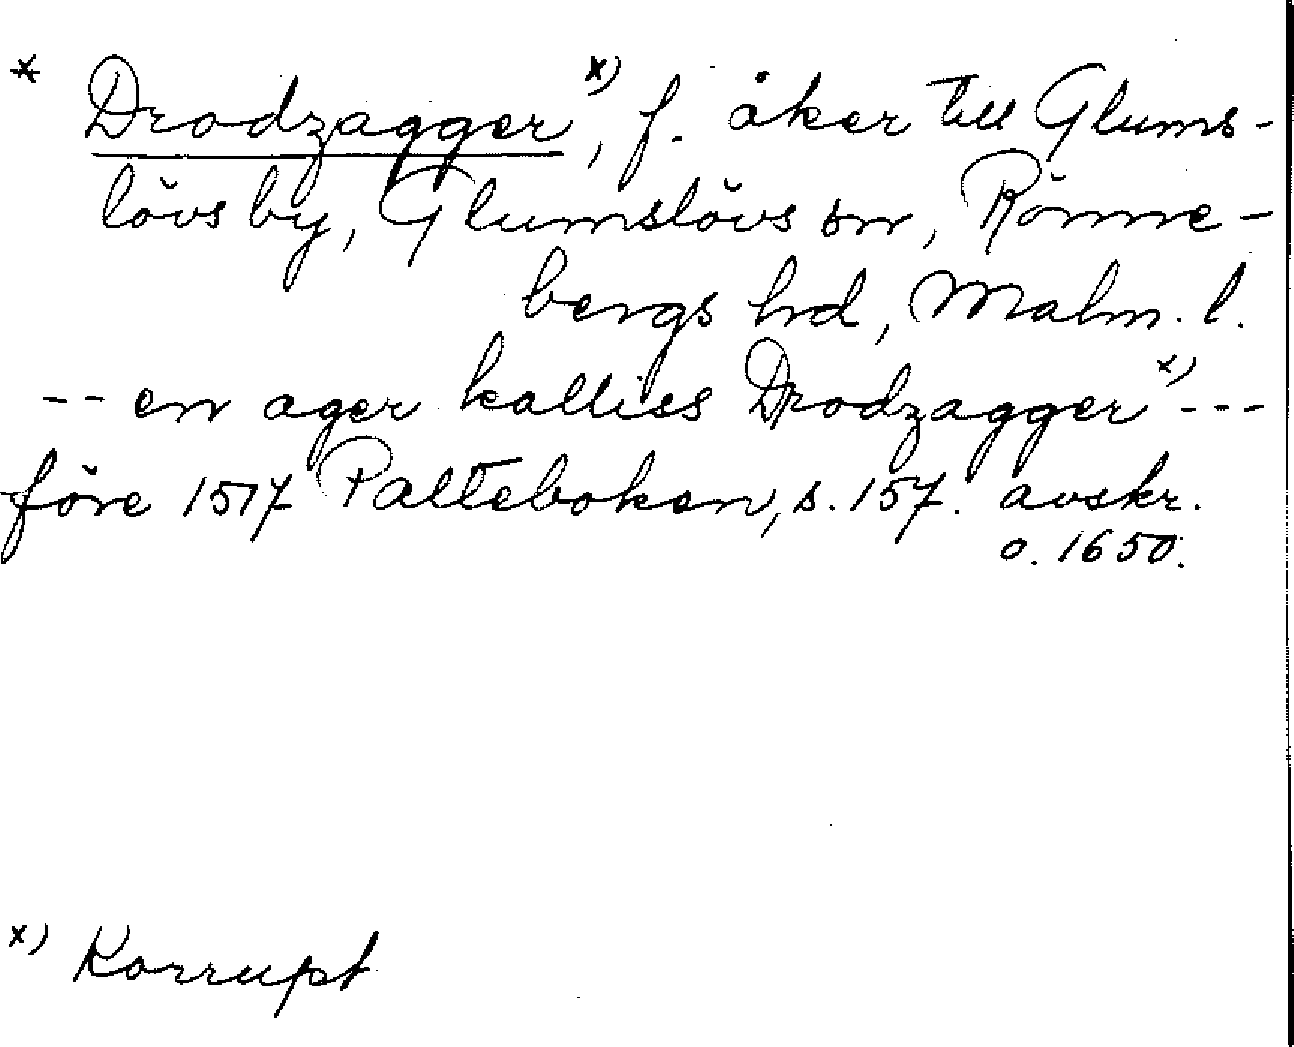 * Drodzagger x), f. åker till Glums-
lövs by, Glumslövs sn, Rönne-
bergs hrd, Malm. l.
-- en ager kalliss Drodzagger x) ---
före 1517 Palteboken, s. 157. avskr.
o. 1650.
x) Korrupt